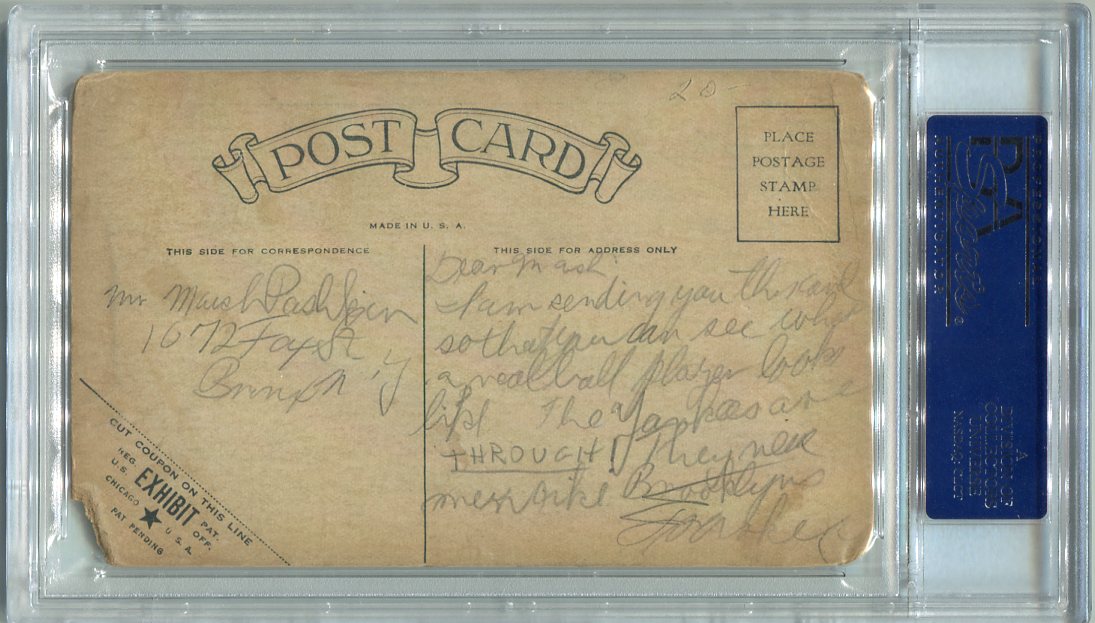 20-
POST CARD
PLACE
POSTAGE
STAMP
HERE
MADE IN U. S. A.
THIS SIDE FOR CORRESPONDENCE
THIS SIDE FOR ADDRESS ONLY
Mr
1672 Fox St
Dear Mash,
I am sending you this card
so that you can see what
a real ball player looks
like The Yankees are
THROUGH! They
Brooklyn
CUT COUPON ON THIS LINE
REG. EXHIBIT PAT.
U.S. OFF.
CHICAGO ★ U.S.A.
PAT PENDING
PSA
A
DIVISION OF
COLLECTORS
UNIVERSE
NASDAQ: CLCT